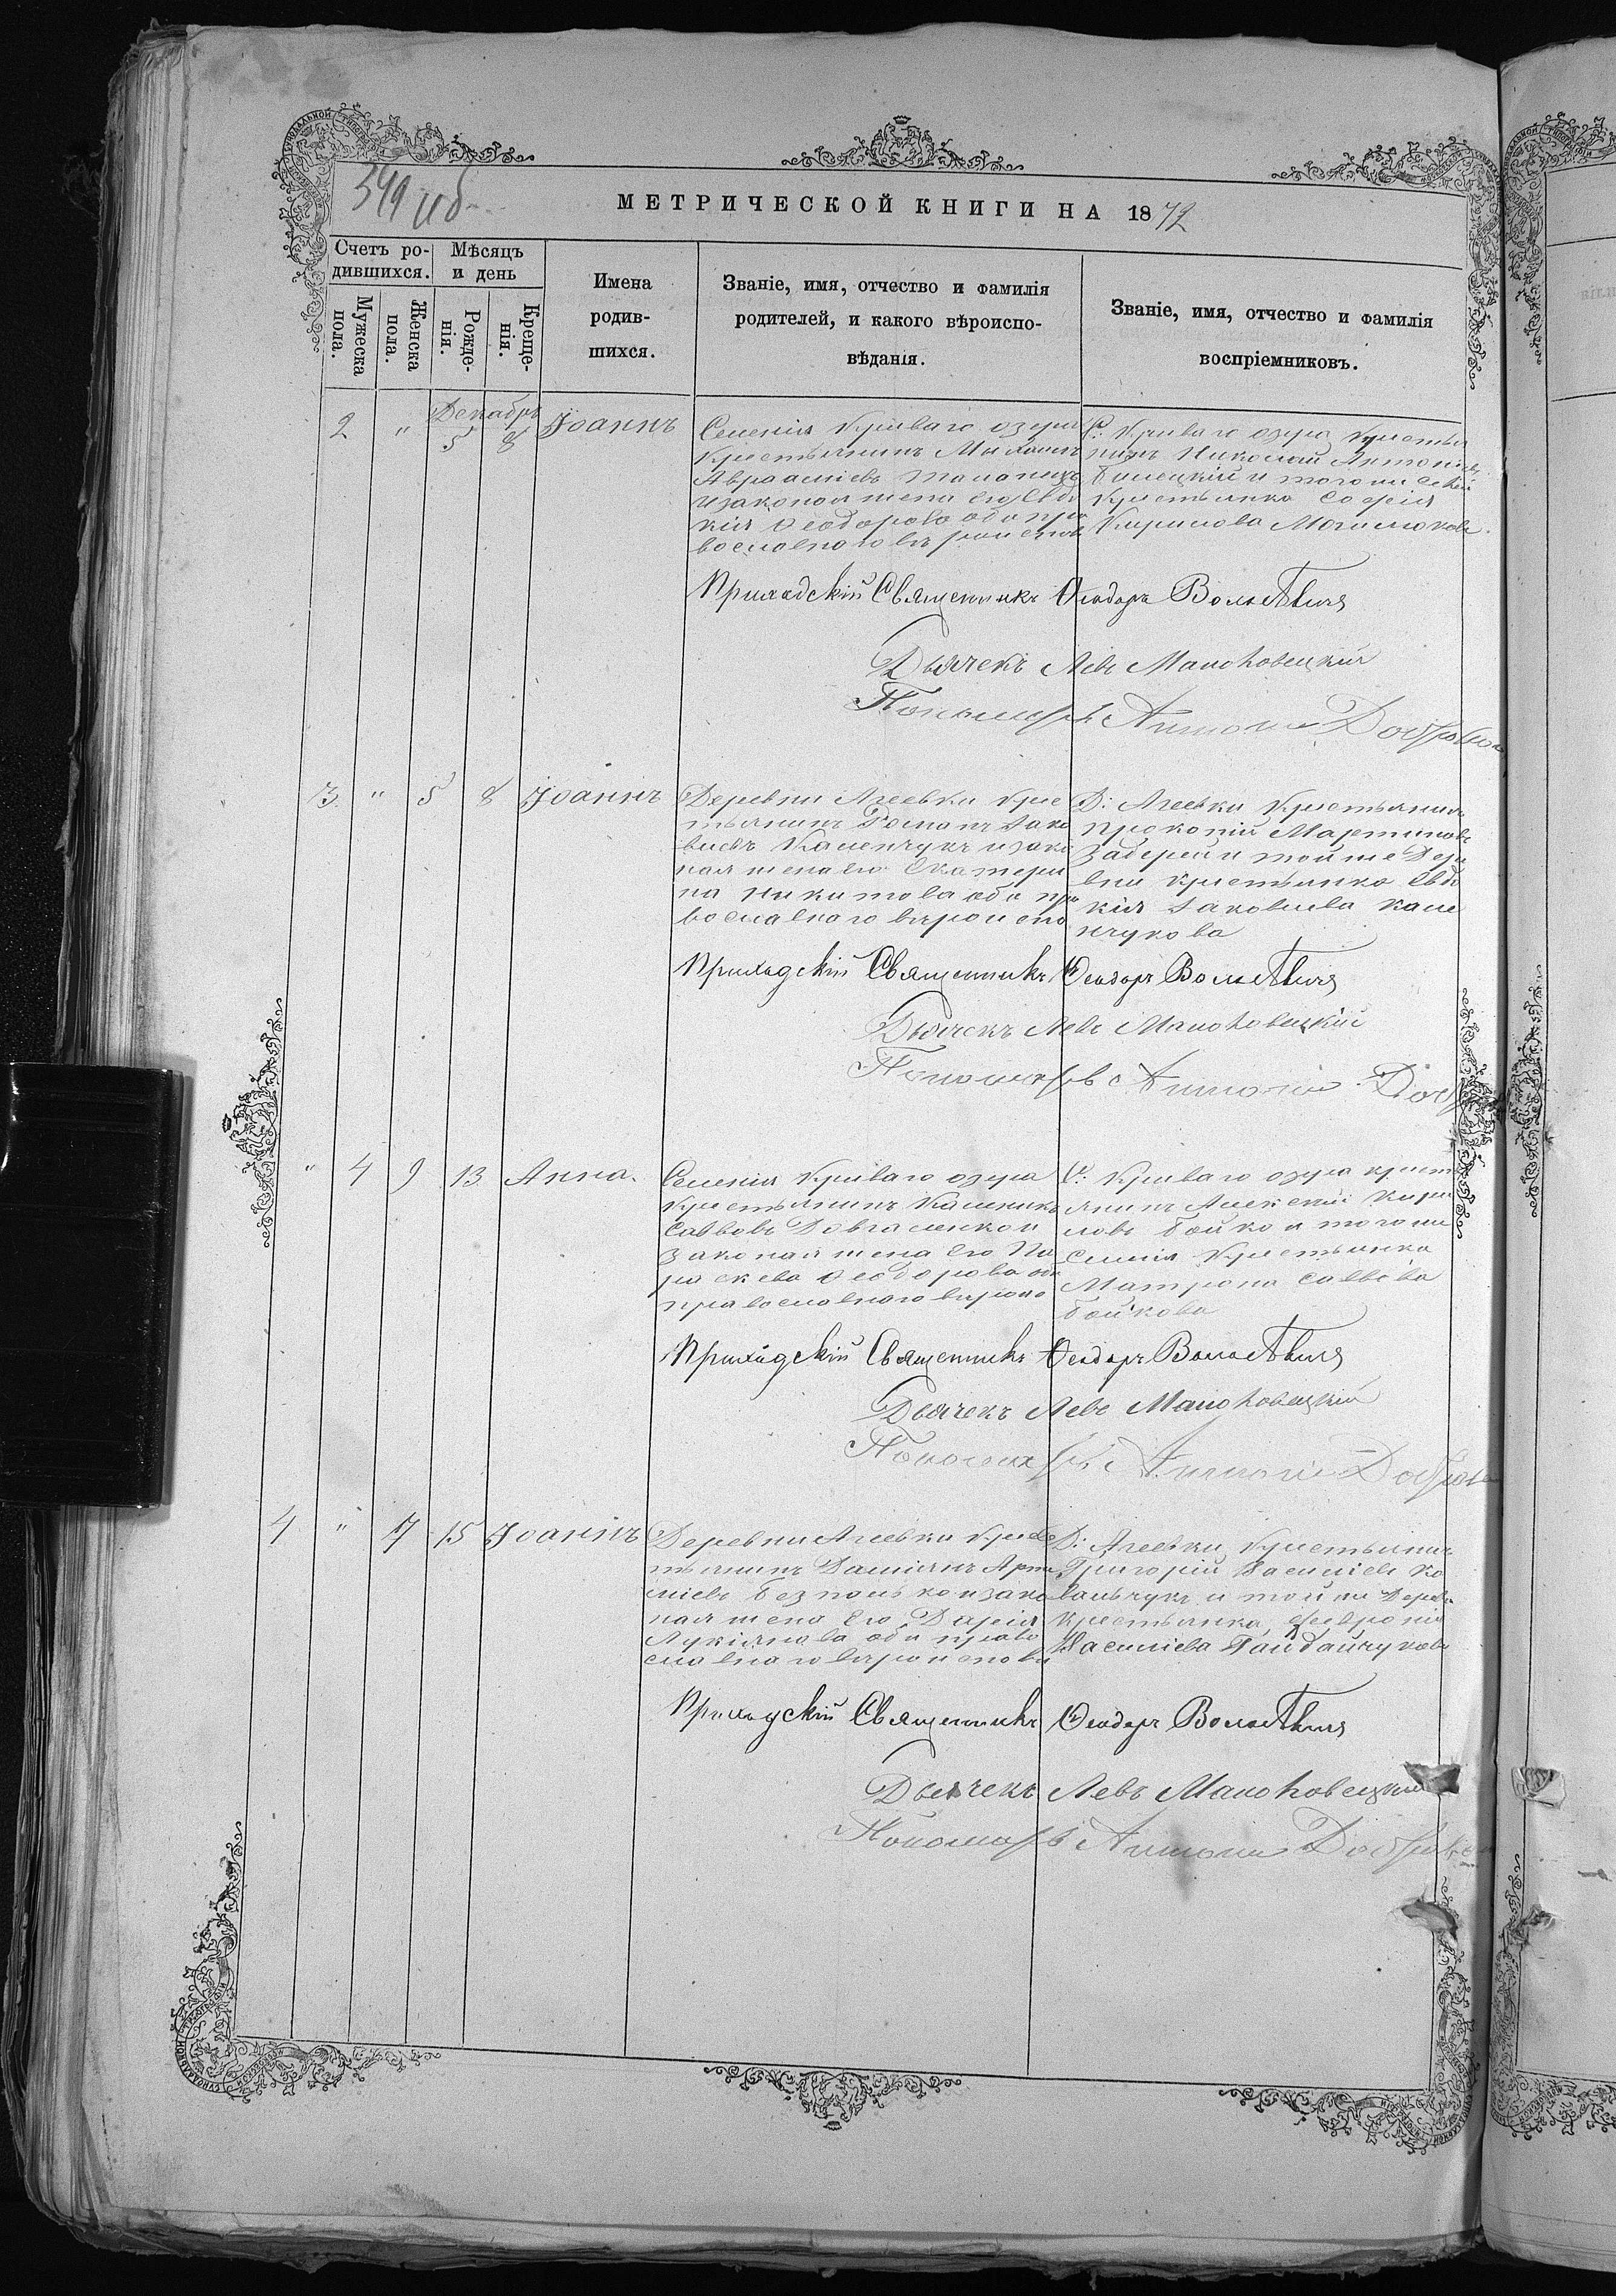 349 об
МЕТРИЧЕСКОЙ КНИГИ НА 1872
Счетъ ро-
дившихся.
Мѣсяцъ
и день
Мужеска
пола.
Женска
пола.
Рожде-
нія.
Креще-
нія.
Имена
родив-
шихся.
Званіе, имя, отчество и фамилія
родителей, и какого вѣроиспо-
вѣданія.
Званіе, имя, отчество и фамилія
воспріемниковъ.
Декабрь
2 " 5 8 Іоаннъ
Селенія Криваго озера
крестьянинъ
Аврааміевъ
и законая жена его Евдо
кія Феодорова оба пра
вославнаго вѣроиспов
С: Криваго озера крестья
нинъ Николай Антоніевъ
и тогоже
крестьянка Софія
Кирилова
Приходскій Священникъ Феодоръ
Дьячекъ Левъ Маноховецкій
Пономарь Антоній
3 " 5 8 Іоаннъ
Деревни Агеевки крес
тьянинъ Романъ Іако
влевъ Каленчукъ и зако
ная жена его Екатери
на Никитова оба пра
вославнаго вѣроиспо
Д: Агеевки крестьянинъ
Прокопій Мартиновъ
и той же дере
вни крестьянка Евдо
кія Іаковлева Кале
нчукова
Приходскій Священникъ Феодоръ
Дьячекъ Левъ Маноховецкій
Пономарь Антоній
" 4 9 13 Анна.
Селенія Криваго озера
крестьянинъ Калиникъ
Саввовъ Довгаленко и
законая жена его Па
раскева Феодорова оба
православнаго вѣроис
С: Криваго озера крест
янинъ Алексій Кири
ловъ Бойко и тогоже
селенія крестьянка
Матрона Саввова
Бойкова
Приходскій Священникъ Феодоръ
Дьячекъ Левъ Маноховецкій
Пономарь Антоній
4 " 7 15 Іоаннъ
Деревни Агеевки крес
тьянинъ Даміянъ
Безпалько и зако
ная жена его Дарія
Лукіянова оба право
славнаго вѣроиспов
Д: Агеевки крестьянинъ
Григорій Василіевъ Ко
вальчукъ и той же деревни
крестьянка Февронія
Василіева Гайдайчукова
Приходскій Священникъ Феодоръ
Дьячекъ Левъ Маноховецкій
Пономарь Антоній